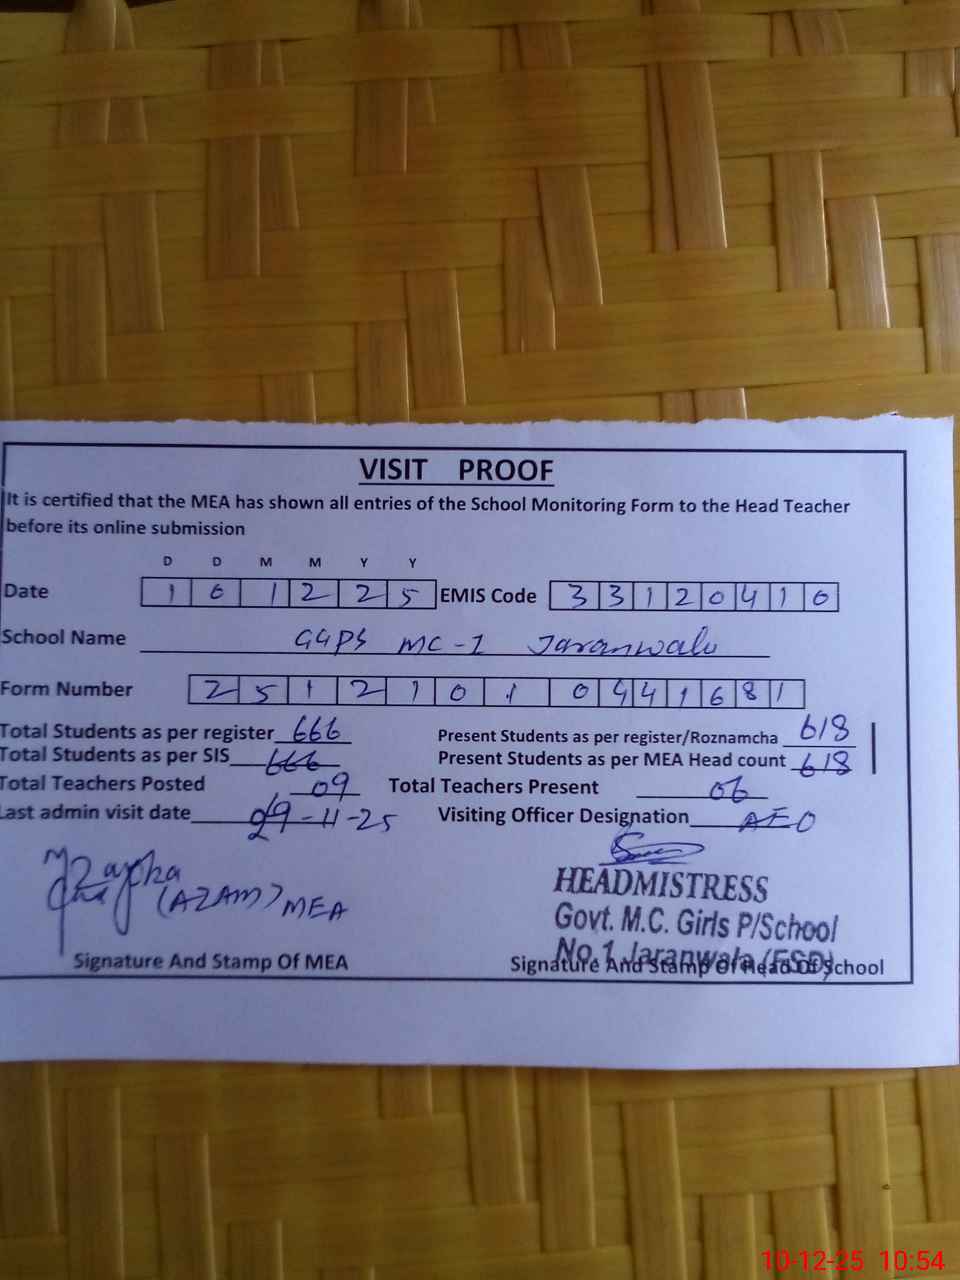 VISIT PROOF
It is certified that the MEA has shown all entries of the School Monitoring Form to the Head Teacher
before its online submission
D D M M Y Y
Date 1 0 1 2 2 5 EMIS Code 3 3 1 2 0 4 1 0
School Name GGPS MC-1 Jaranwala
Form Number 2 5 1 2 1 0 1 0 4 4 1 6 8 1
Total Students as per register 666 Present Students as per register/Roznamcha 618
Total Students as per SIS 666 Present Students as per MEA Head count 618
Total Teachers Posted 09 Total Teachers Present 06
Last admin visit date 29-11-25 Visiting Officer Designation AEO
(AZAM) MEA
HEADMISTRESS
Govt. M.C. Girls P/School
No.1 Jaranwala (FSD)
Signature And Stamp Of MEA Signature And Stamp Of Head Of School
10-12-25 10:54